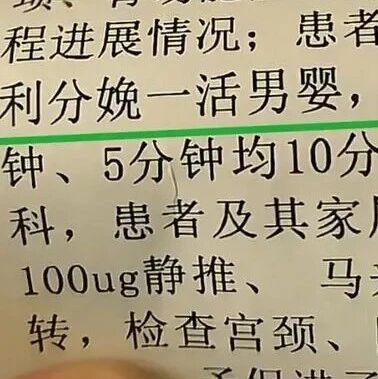 程进展情况；患者
利分娩一活男婴，
钟、5分钟均10分
科，患者及其家
100ug静推、马
转，检查宫颈、